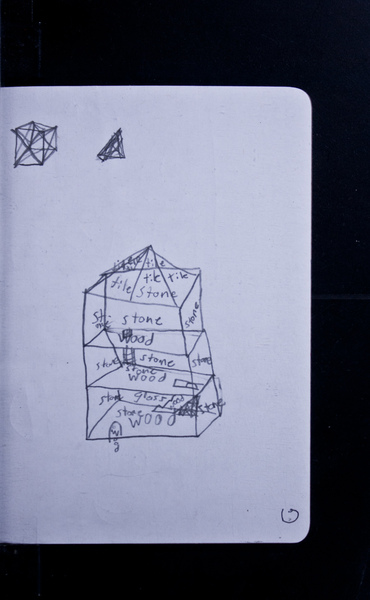 tile
tile tile tile
stone
stone stone
wood
stone stone stone
stone
wood
stone glass
stone stone
wood